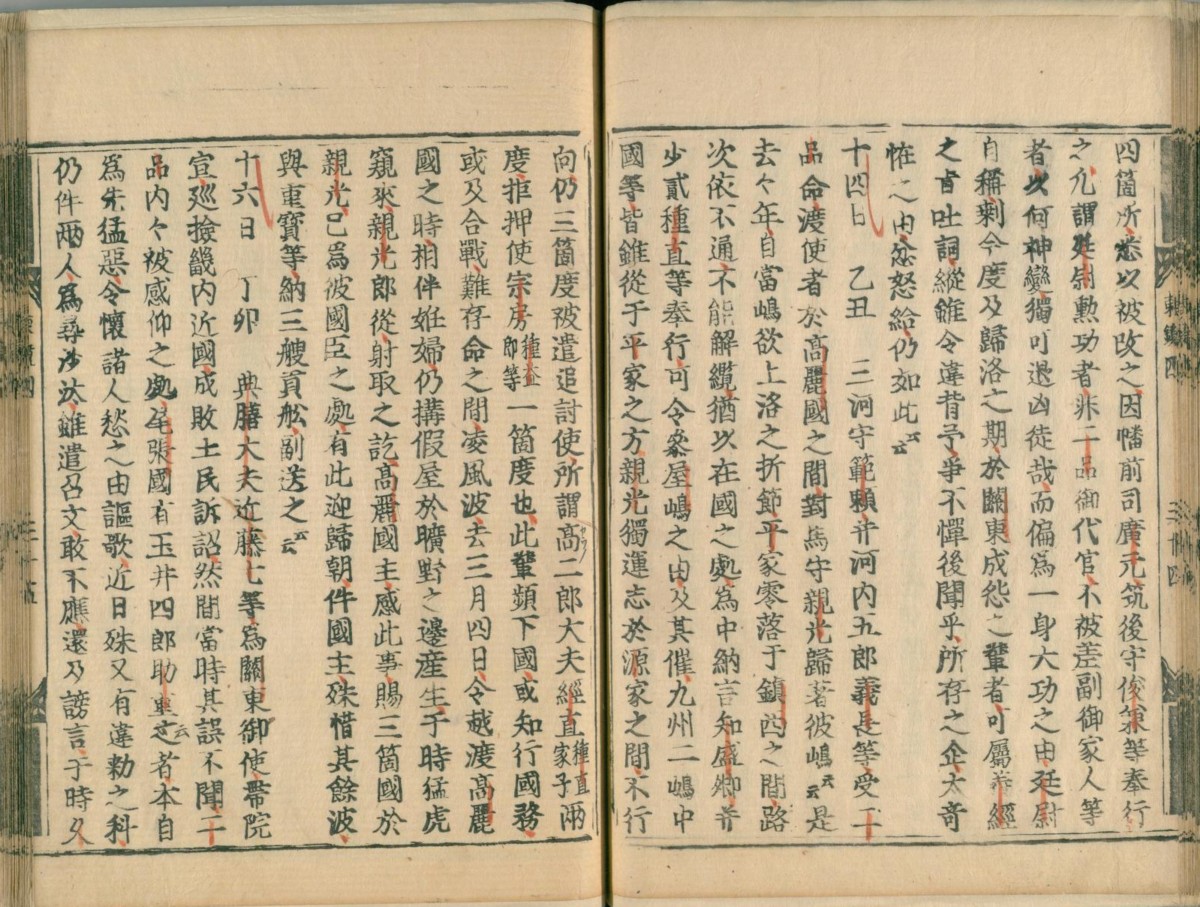 四箇所、悉以被改之、因幡前司廣元筑後守俊兼等奉行
之、凡謂廷尉勲功者、非二品御代官、不被差副御家人等
者、以何神變、獨可退凶徒哉、而偏爲一身大功之由、廷尉
自稱、剩今度及歸洛之期、於關東成怨之輩者、可屬義經
之旨吐詞、縱雖令違背予、爭不憚後聞乎、所存之企、太奇
恠之由、忿怒給、仍如此云云
十四日　乙丑　三河守範頼并河内五郎義長等受二
品命、渡使者於高麗國之間、對馬守親光歸著彼嶋云云是
去々年、自當嶋欲上洛之折節、平家零落于鎮西之間、路
次依不通、不能解纜、猶以在國之處、爲中納言知盛卿、并
少貳種直等奉行、可令參屋嶋之由、及其催、九州二嶋中
國等、皆雖從于平家之方、親光獨運志於源家之間、不行
向、仍三箇度被遣追討使、所謂高二郎大夫經直種直家子兩
度、拒押使宗房種益郎等一箇度也、此輩頻下國、或知行國務、
或及合戰、難存命之間、凌風波、去三月四日、令越渡高麗
國之時、相伴姙婦、仍搆假屋於曠野之邊産生、于時猛虎
窺來、親光郎從、射取之訖、高麗國主、感此事、賜三箇國於
親光、已爲彼國臣之處、有此迎歸朝、件國主、殊惜其餘波、
與重寶等、納三艘貢舩、副送之云云
十六日　丁卯　典膳大夫近藤七等、爲關東御使、帶院
宣、巡撿畿内近國、成敗土民訴訟、然間當時其誤不聞、二
品内々被感仰之處、尾張國有玉井四郎助重云云之者、本自
爲先猛惡、令懷諸人愁之由謳歌、近日殊又有違勅之科、
仍件兩人、爲尋沙汰、雖遣召文、敢不應、還及謗言、于時久